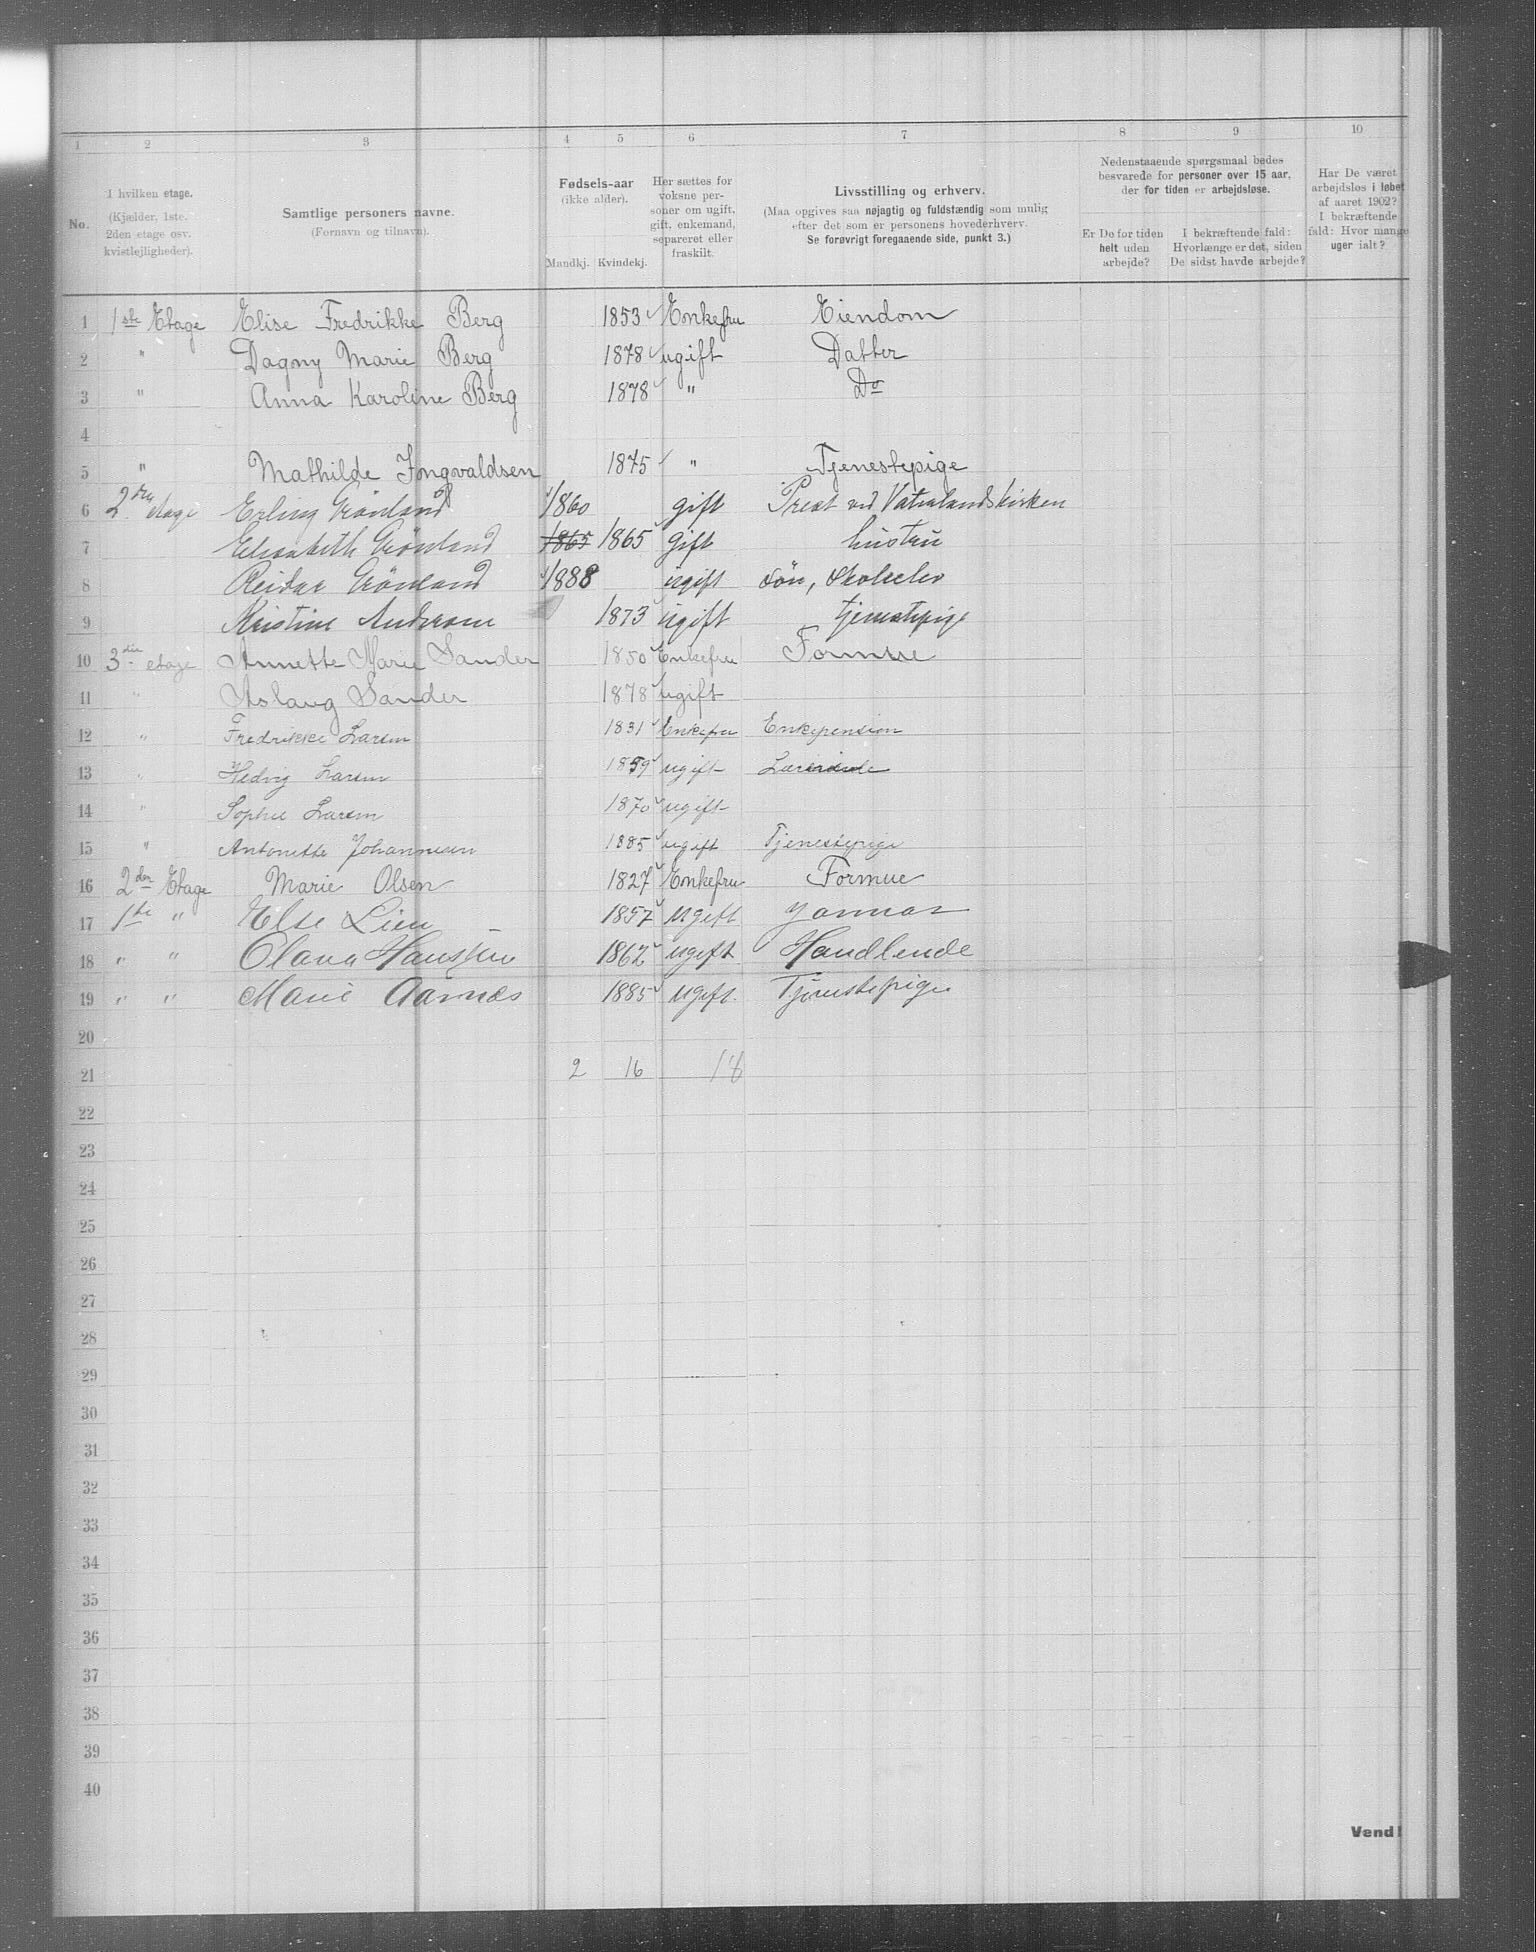 1 2 3 4 5 6 7 8 9 10
No.
I hvilken etage.
(Kjælder, 1ste.
2den etage osv.
kvistlejligheder).
Samtlige personers navne.
(Fornavn og tilnavn).
Fødsels-aar
(ikke alder).
Mandkj. Kvindekj.
Her sættes for
voksne per-
soner om ugift,
gift, enkemand,
separeret eller
fraskilt.
Livsstilling og erhverv.
(Maa opgives saa nøjagtig og fuldstændig som mulig
efter det som er personens hovederhverv.
Se forøvrigt foregaaende side, punkt 3.)
Nedenstaaende spørgsmaal bedes
besvarede for personer over 15 aar,
der for tiden er arbejdsløse.
Er De for tiden
helt uden
arbejde?
I bekræftende fald:
Hvorlænge er det, siden
De sidst havde arbejde?
Har De været
arbejdsløs i løbet
af aaret 1902?
I bekræftende
fald: Hvor mange
uger ialt?
1 1ste Etage Elise Fredrikke Berg 1853 Enkefru Eiendom
2 " Dagny Marie Berg 1878 ugift Datter
3 " Anna Karoline Berg 1878 " Do
4
5 " Mathilde Ingvaldsen 1875 " Tjenestepige
6 2den etage Erling Grönland 1860 gift Prest ved Vaterlandskirken
7 Elisabeth Grönland 1865 1865 gift hustru
8 Reidar Grönland 1888 ugift Sön, Skoleelev
9 Kristine Anderson 1873 ugift tjenestepige
10 3die etage Annette Marie Sander 1850 Enkefru Formue
11 " Aslaug Sander 1878 ugift
12 " Fredrikke Larsen 1831 Enkefru Enkepension
13 " Hedvig Larsen 1859 ugift Lærerinde
14 " Sophie Larsen 1870 ugift
15 " Antonette Johannesen 1885 ugift Tjenestepige
16 2den Etage Marie Olsen 1827 Enkefru Formue
17 1ste " Else Lien 1857 ugift
18 " " Olava Hanssen 1862 ugift Handlende
19 " " Marie Aarnæs 1885 ugift. Tjenestepige
20
21 2 16 18
22
23
24
25
26
27
28
29
30
31
32
33
34
35
36
37
38
39
40
Vend!